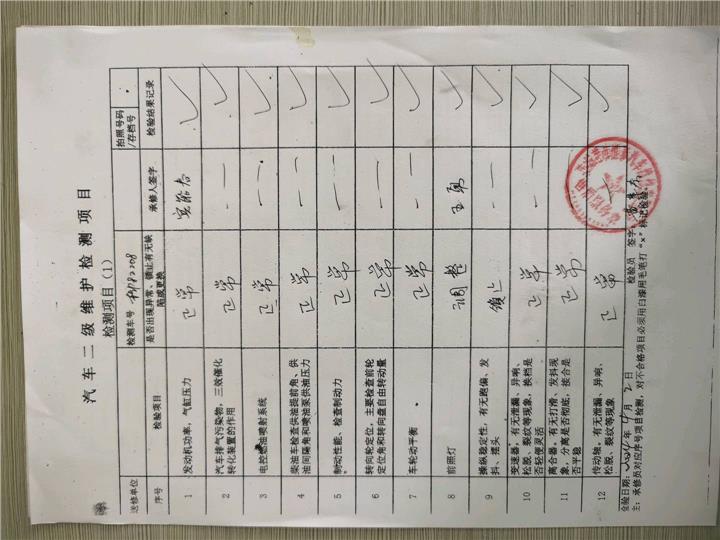 汽车二级维护检测项目
检测项目(1)
送修单位 检测车号 拍照号码/存档号
序号 检验项目 是否出现异常、镄正有无缺陷或更换 承修人签字 检验结果记录
1 发动机功率，气缸压力 正常 ✓
2 汽车排气污染物，三效催化转化装置的作用 正常 ✓
3 电控燃油喷射系统 正常 ✓
4 柴油车检查供油提前角、供油间隔角和喷油泵供油压力 正常 ✓
5 制动性能、检查制动力 正常 ✓
6 转向轮定位，主要检查前轮定位角和转向盘自由转动量 正常 ✓
7 车轮动平衡 正常 ✓
8 前照灯 调整 ✓
9 操纵稳定性，有无跑偏、发抖、摆头 ✓
10 变速器，有无泄漏、异响、松脱、裂纹等现象，换档是否轻便灵活 正常 ✓
11 离合器，有无打滑，发抖现象，分离是否彻底，接合是否平稳 正常 ✓
12 传动轴，有无泄漏、异响、松脱、裂纹等现象 正常 ✓
检验员 签字
主：承修员对应序号项目检测，对不合格项目必须用白漆用毛笔打“×”标记检验